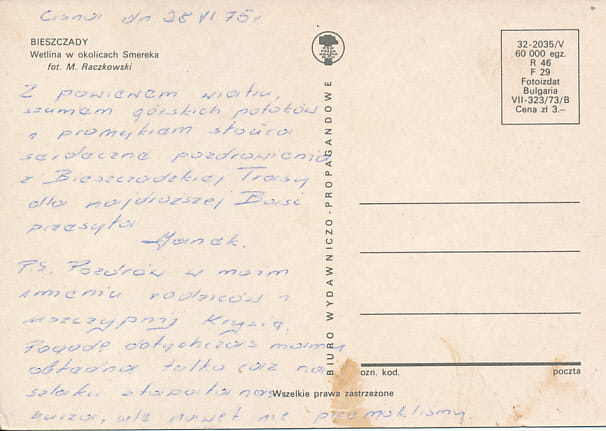 Cisna dn 28 VI 75r
BIESZCZADY
Wetlina w okolicach Smereka
fot. M. Raczkowski
Z powiewem wiatru,
szumem górskich potoków
i promykiem słońca
serdeczne pozdrowienia
z Bieszczadzkiej Trasy
dla najdroższej Basi
przesyła
Janek.
P.S. Pozdrów w moim
imieniu rodziców i
uszczypnij Krysię.
Pogodę dotychczas mamy
obłędną tylko raz na
szlaku złapała nas
burza, ale nawet nie przemokliśmy.
BIURO WYDAWNICZO-PROPAGANDOWE
32-2035/V
60 000 egz.
R 46
F 29
Fotoizdat
Bulgaria
VII-323/73/B
Cena zł 3.—
ozn. kod. poczta
Wszelkie prawa zastrzeżone